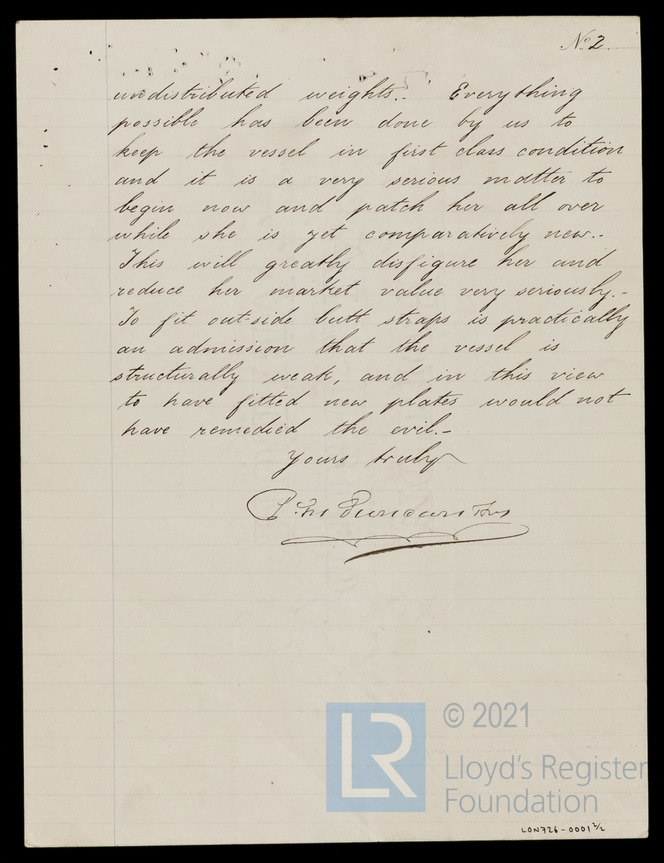 No. 2
undistributed weights. Everything
possible has been done by us to
keep the vessel in first class condition
and it is a very serious matter to
begin now and patch her all over
while she is yet comparatively new.-
This will greatly disfigure her and
reduce her market value very seriously.-
To fit outside butt straps is practically
an admission that the vessel is
structurally weak, and in this view
to have fitted new plates would not
have remedied the evil.-
Yours truly
Duncan
LR
© 2021
Lloyd's Register
Foundation
LON726-0001 2/2